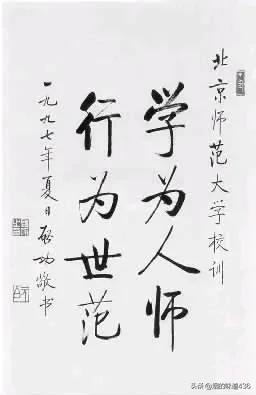 北京师范大学校训
学为人师
行为世范
一九九七年夏日启功敬书
头条@思的味道436